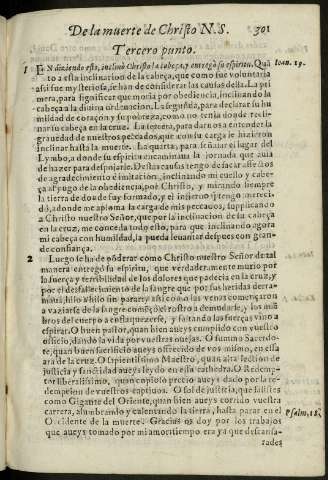 De la muerte de Christo N.S. 301
Tercero punto.
1 EN diziendo esto, inclinò Christo la cabeça, y entregò su espiritu. Quã Ioan. 19.
to a esta inclinacion de la cabeça, que como fue voluntaria
assi fue mysteriosa, se han de considerar las causas della. La pri
mera, para significar que moria por obediencia, inclinando la
cabeça a la diuina ordenacion. La segunda, para declarar su hu
mildad de coraçon y su pobreza, como no tenia donde recli-
nar su cabeça en la cruz. La tercera, para darnos a entender la
grauedad de nuestros peccados, que con su carga le hizieron
inclinar hasta la muerte. La quarta, para señalar el lugar del
Lymbo, a donde su espiritu encaminaua la jornada que auia
de hazer para despojarlo. Destas causas tengo de sacar affectos
de agradecimiento e imitacion, inclinando mi cuello y cabe-
ça al yugo de la obediencia, por Christo, y mirando siempre
la tierra de donde fuy formado, y el infierno que tengo mereci-
do, a donde me abate la carga de mis peccados, suplicando
a Christo nuestro Señor, que por la inclinacion de su cabeça
en la cruz, me conceda todo esto, para que inclinando agora
mi cabeça con humildad, la pueda leuantar despues con gran-
de confiança.
2 Luego se ha de põderar como Christo nuestro Señor de tal
manera entregò su espiritu, que verdaderamente murio por
la fuerça y terribilidad de los dolores que padecia en cruz, y
por el desfallecimiento de la sangre que por sus heridas derra-
maua, hilo a hilo sin parar: y assi como las venas començaron
a vaziarse de la sangre, començò el rostro a demudarse, y los mi
bros del cuerpo a enflaquezerse, y faltando las fuerças vino a
espirar. O buen pastor, quan bien aueys cumplido con vuestro
officio, dando la vida por vuestras ouejas. O summo Sacerdo-
te, quan bien sacrificio aueys offrecido de vos mismo, en essa
ara de la cruz. O sapientissimo Maestro, quan alta lection de
justicia y sanctidad aueys leydo en essa cathedra. O Redemp-
tor liberalissimo, quan copioso precio aueys dado por la re-
dempcion de vuestros captiuos. O sol de justicia, que salistes
como Gigante del Oriente, quan bien aueys corrido vuestra
carrera, alumbrando y calentando la tierra, hasta parar en el Psalm. 18.
Occidente de la muerte. Gracias os doy por los trabajos
que aueys tomado por mi amor: tiempo era ya que descansa-
rades